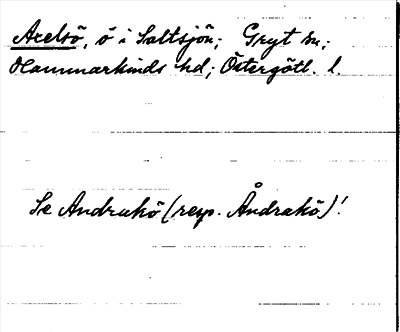 Axelsö, ö i Saltsjön; Gryt sn;
Hammarkinds hd; Östergötl. l.
Se Andrakö (resp. Åndrakö)!